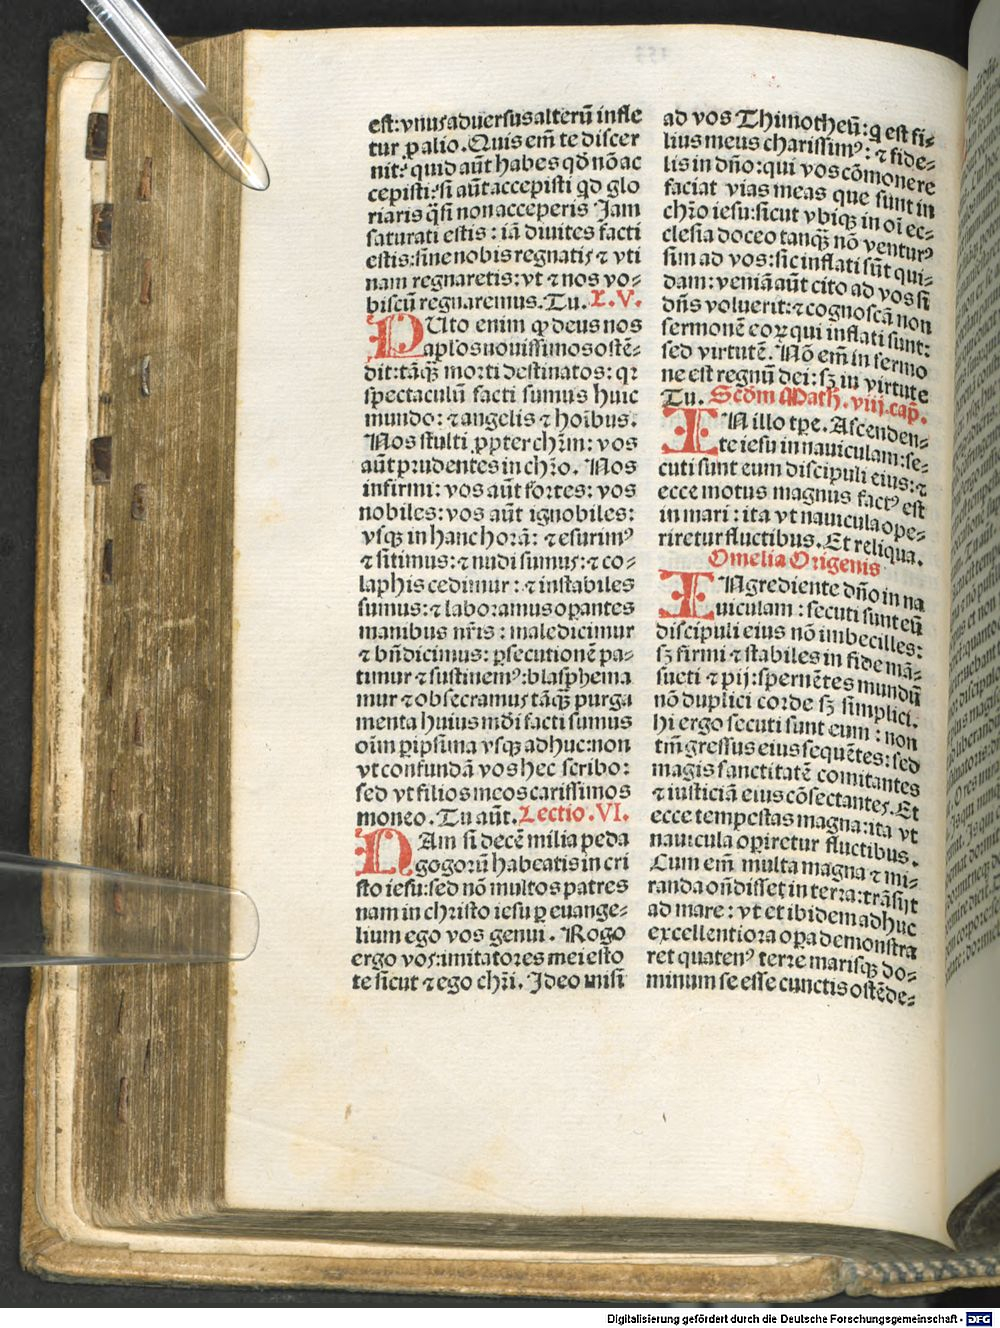 est: vnus aduersus alterū infle
tur ꝓ alio. Quis em̄ te discer
nit? quid aūt habes qd̄ nō ac
cepisti? si aūt accepisti qd glo
riaris q̄si non acceperis Jam
saturati estis: iā diuites facti
estis: sine nobis regnatis ⁊ vti
nam regnaretis: vt ⁊ nos vo⸗
biscū regnaremus. Tu. L. V.
PUto enim ꝙ deus nos
apl'os nouissimos ostē⸗
dit: tāqȝ morti destinatos: qꝛ
spectaculū facti sumus huic
mundo: ⁊ angelis ⁊ hoībus.
Nos stulti ꝓpter chr̄m: vos
aūt prudentes in chr̄o. Nos
infirmi: vos aūt fortes: vos
nobiles: vos aūt ignobiles:
vsqȝ in hanc horā: ⁊ esurimꝰ
⁊ sitimus: ⁊ nudi sumus: ⁊ co⸗
laphis cedimur: ⁊ instabiles
sumus: ⁊ laboramus oꝑantes
manibus nr̄is: maledicimur
⁊ bn̄dicimus: ꝑsecutionē pa⸗
timur ⁊ sustinemꝰ: blasphema
mur ⁊ obsecramus tāqȝ purga
menta huius mūdi facti sumus
oīm ꝑipsima vsqȝ adhuc: non
vt confundā vos hec scribo:
sed vt filios meos carissimos
moneo. Tu aūt. Lectio. VI.
NAm si decē milia peda
gogorū habeatis in cri
sto iesu: sed nō multos patres
nam in christo iesu ꝑ euange⸗
lium ego vos genui. Rogo
ergo vos: imitatores mei esto
te sicut ⁊ ego chr̄i. Jdeo misi
ad vos Thimotheū: q̄ est fi⸗
lius meus charissimꝰ: ⁊ fide⸗
lis in dn̄o: qui vos cōmonere
faciat vias meas que sunt in
chr̄o iesu: sicut vbiqȝ in oī ec⸗
clesia doceo tanqȝ nō venturꝰ
sim ad vos: sic inflati sūt qui⸗
dam: veniā aūt cito ad vos si
dn̄s voluerit: ⁊ cognoscā non
sermonē eoꝝ qui inflati sunt:
sed virtutē. Nō em̄ in sermo
ne est regnū dei: sȝ in virtute
Tu. Scd̄m Math. viij. cap̄.
IN illo tp̄e. Ascenden⸗
te iesu in nauiculam: se⸗
cuti sunt eum discipuli eius: ⁊
ecce motus magnus factꝰ est
in mari: ita vt nauicula ope⸗
riretur fluctibus. Et reliqua.
Omelia Origenis
INgrediente dn̄o in na
uiculam: secuti sunt eū
discipuli eius nō imbecilles:
sȝ firmi ⁊ stabiles in fide mā⸗
sueti ⁊ pij: spernētes mundū
nō duplici corde sȝ simplici.
hi ergo secuti sunt eum: non
tm̄ gressus eius sequētes: sed
magis sanctitatē comitantes
⁊ iusticiā eius cōsectantes. Et
ecce tempestas magna: ita vt
nauicula oꝑiretur fluctibus.
Cum em̄ multa magna ⁊ mi⸗
randa on̄disset in terra: trāsijt
ad mare: vt et ibidem adhuc
excellentiora oꝑa demonstra
ret quatenꝰ terre marisqȝ do⸗
minum se esse cunctis ostēde⸗
Digitalisierung gefördert durch die Deutsche Forschungsgemeinschaft - DFG